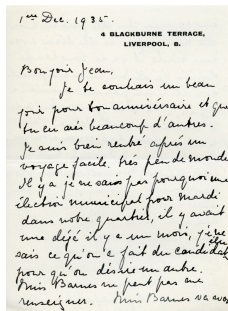 1er Dec. 1935.
4 BLACKBURNE TERRACE,
LIVERPOOL, 8.
Bonjour Jean,
Je te souhais un beau
jour pour ton anniversaire et que
tu en aies beaucoup d'autres.
Je suis bien rentré après un
voyage facile, très peu de monde
Il y a je ne sais pas pourquoi une
élection municipal pour mardi
dans notre quartier, il y avait
une déjé il y a un mois, je ne
sais ce qu'on a fait du candidat élu
pour qu'on désire un autre.
Miss Barnes ne peut pas me
renseigner. Miss Barnes va